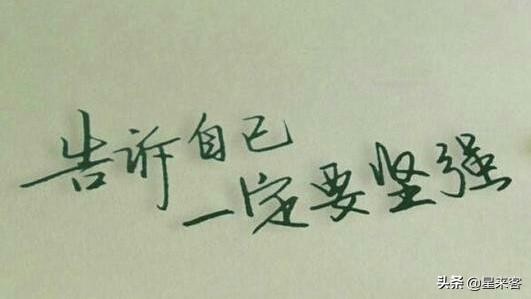 告诉自己
一定要坚强
头条 @星来客